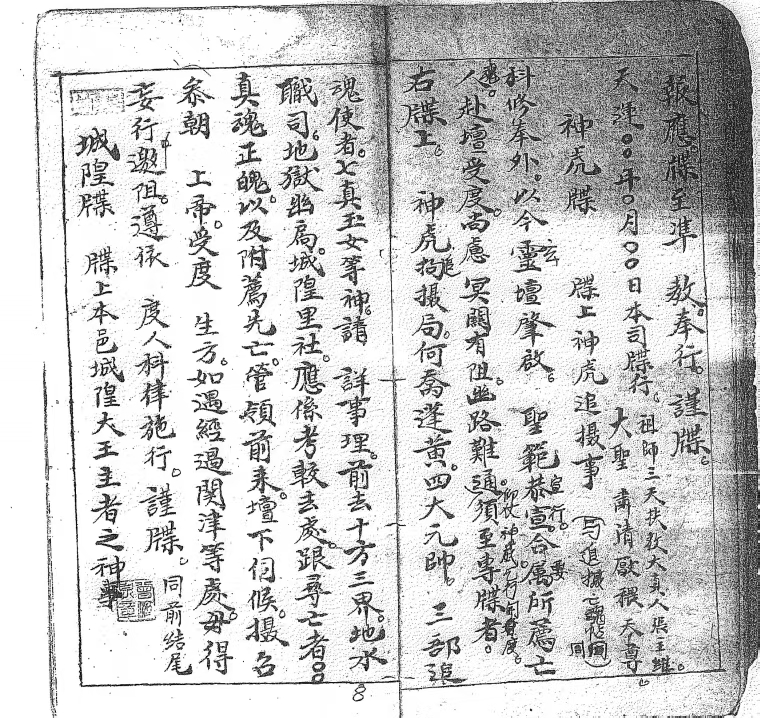 報應。牒至準 教奉行。謹牒。
天運〇〇年〇月〇〇日本司牒行。祖師三天扶教大真人張主維。
大聖 肅清厭穢天尊。
神虎牒 牒上神虎追攝事(与追攝亡魂俗同同)
科修奉外。以今靈壇肇啟。 聖範恭宣。合属所薦亡
玄
宜行。要
魂。
人赴壇受度。尚慮 冥關有阻。幽路難通。須至專牒者。
右牒上。 神虎招攝局。何喬逢黃。四大元帥。 三部追
追
魂使者。七真玉女等神。請 詳事理。前去十方三界。地水
職司。地獄幽局。城隍里社。應係考較去處。跟尋亡者〇〇
真魂正魄。以及附薦先亡。管領前来壇下伺候。攝召
叅朝 上帝。受度 生方。如遇經過関津等處。毋得
妄行邀阻。遵依 度人科律施行。謹牒。同前結尾
城隍牒 牒上本邑城隍大王主者之神
8